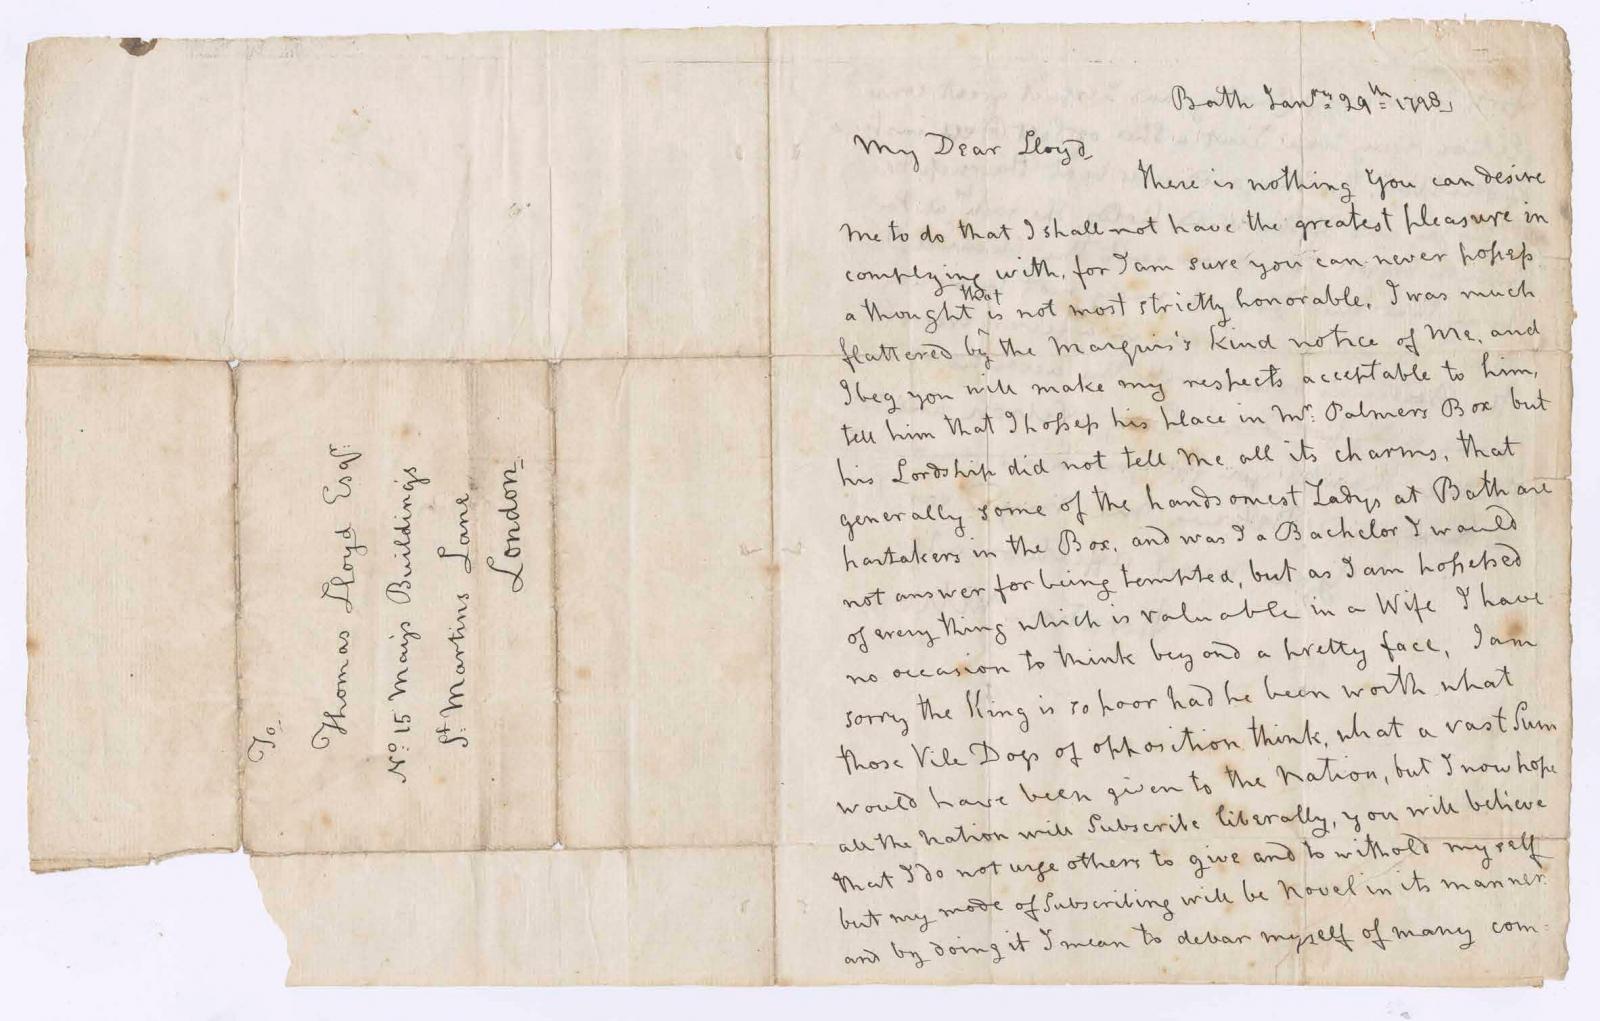 To
Thomas Lloyd Esqr:
No: 15 Mays Buildings
St: Martins Lane
London
Bath Janry: 29th: 1798
My Dear Lloyd
There is nothing You can desire
me to do that I shall not have the greatest pleasure in
complying with, for I am sure you can never possess
a thought that is not most strictly honorable, I was much
flattered by the Marquis's kind notice of me, and
I beg you will make my respects acceptable to him,
tell him that I possess his place in Mr: Palmers Box but
his Lordship did not tell me all its charms, that
generally some of the handsomest Ladys at Bath are
partakers in the Box, and was I a Bachelor I would
not answer for being tempted, but as I am possessed
of every thing which is valuable in a Wife I have
no occasion to think beyond a pretty face, I am
sorry the King is so poor had he been worth what
those Vile Dogs of opposition think, what a vast Sum
would have been given to the Nation, but I now hope
all the Nation will Subscribe liberally, you will believe
that I do not urge others to give and to withold myself
but my mode of Subscribing will be Novel in its manner
and by doing it I mean to debar myself of many com-